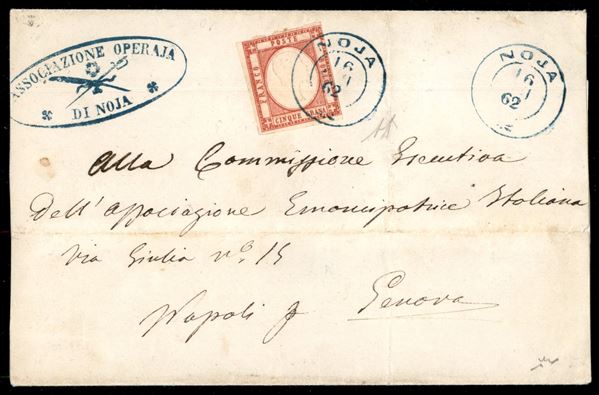 ASSOCIAZIONE OPERAJA
DI NOJA
POSTE
FRANCO
CINQUE GRANA
NOJA
16
62
NOJA
16
62
Alla Commissione Esecutiva
Dell'Associazione Emancipatrice Italiana
Via Giulia nº. 15
Napoli p Genova